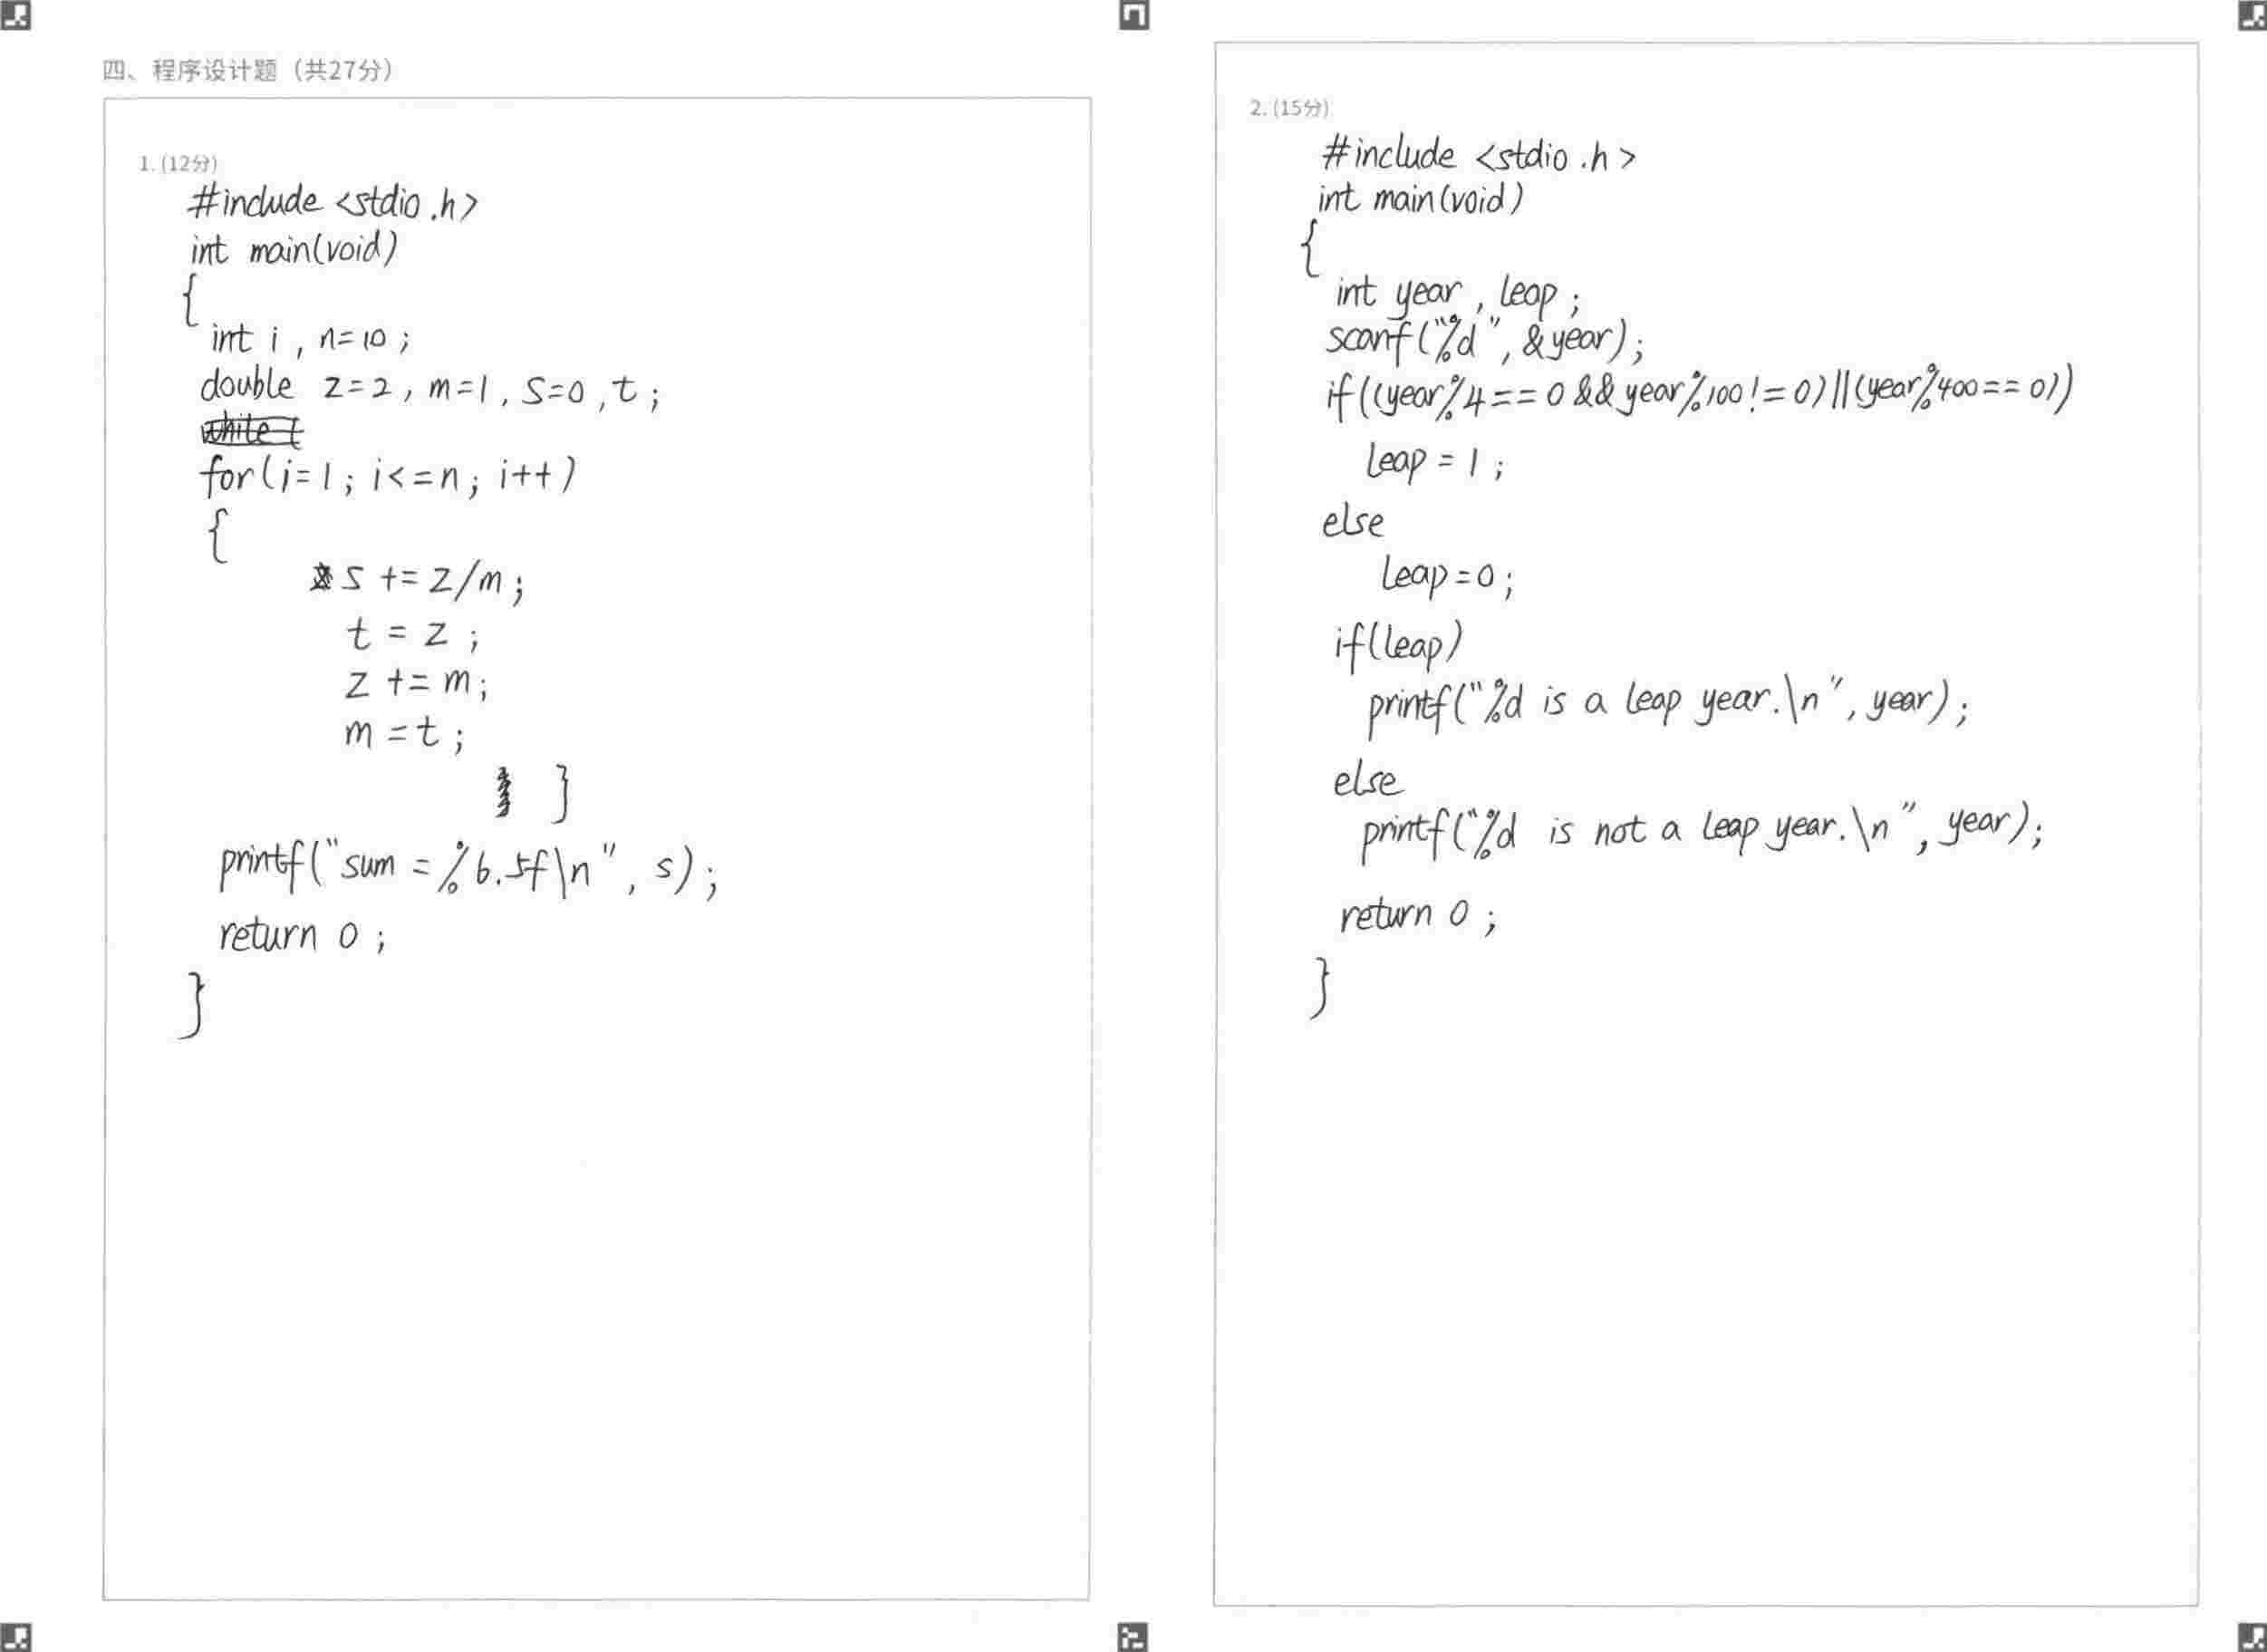 四、程序设计题（共27分）
1. (12分)
#include <stdio.h>
int main(void)
{
int i, n=10;
double z=2, m=1, s=0, t;
for(i=1; i<=n; i++)
{
s += z/m;
t = z;
z += m;
m = t;
}
printf("sum = %6.5f\n", s);
return 0;
}
2. (15分)
#include <stdio.h>
int main(void)
{
int year, leap;
scanf("%d", &year);
if((year%4==0 && year%100!=0)||(year%400==0))
leap = 1;
else
leap=0;
if(leap)
printf("%d is a leap year.\n", year);
else
printf("%d is not a leap year.\n", year);
return 0;
}